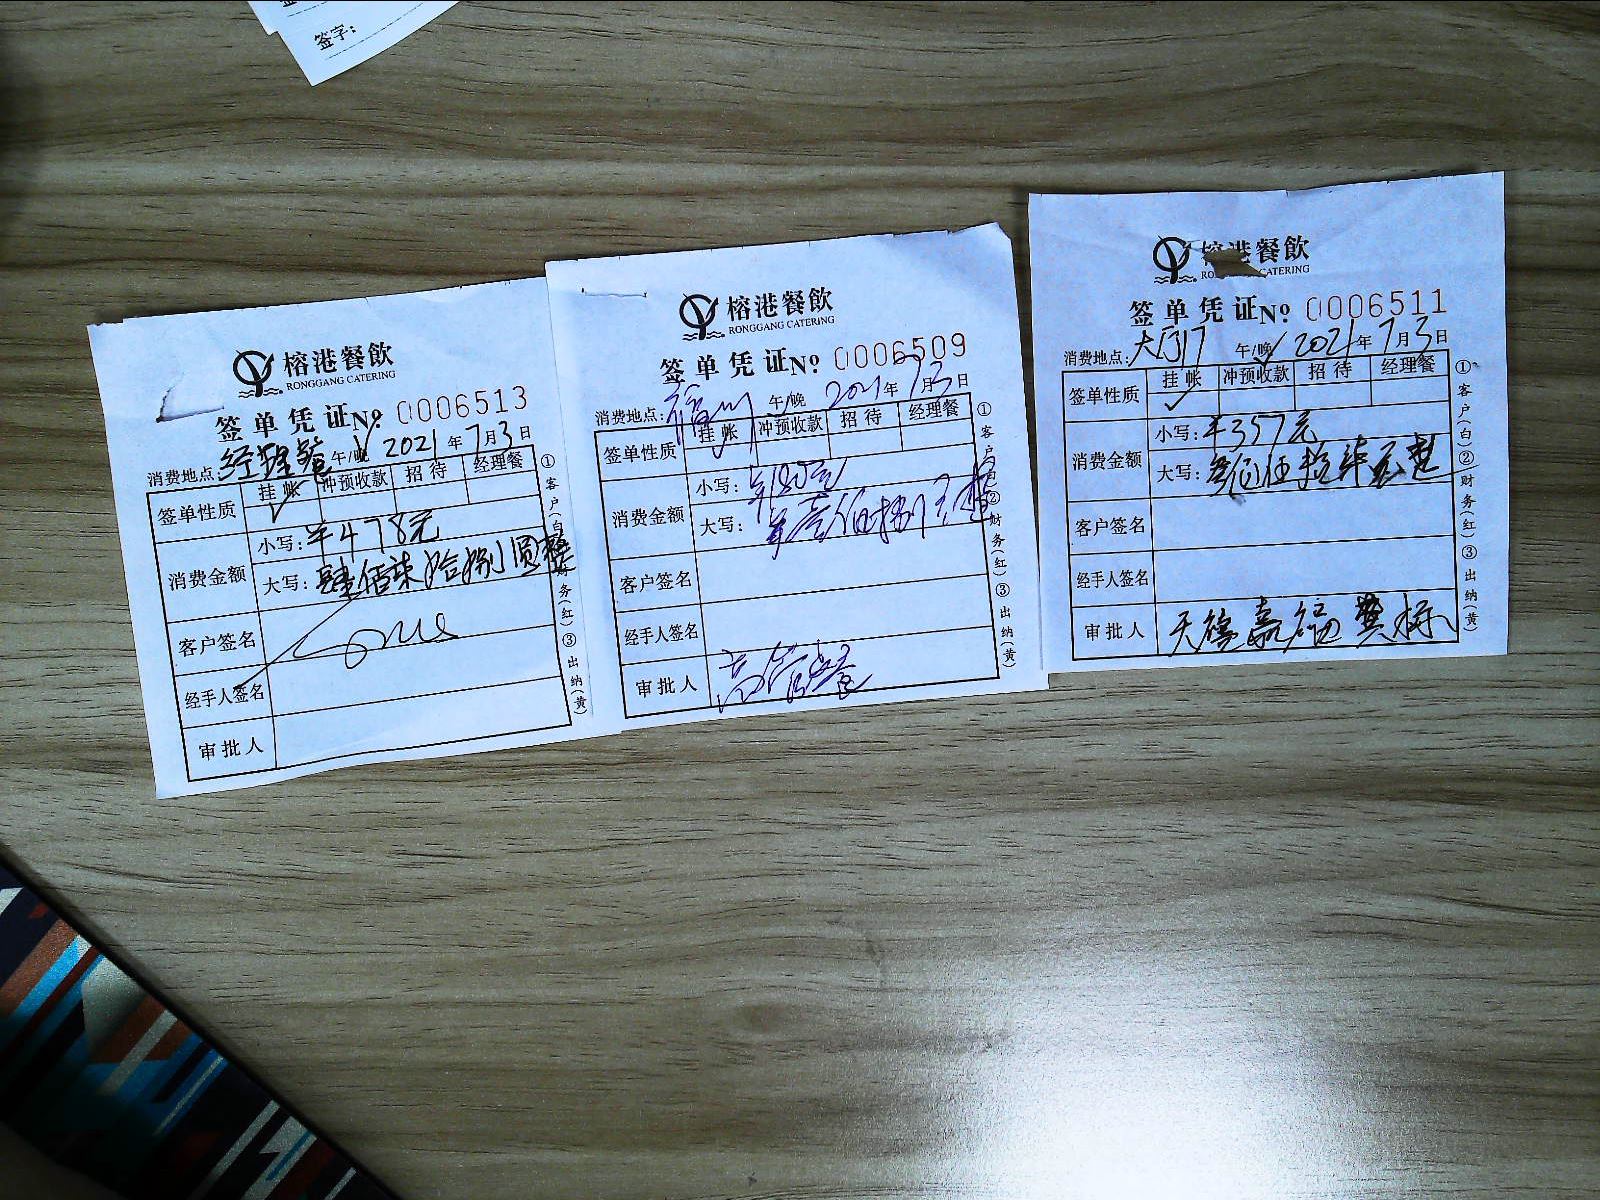 签字:
榕港餐飲
RONGGANG CATERING
签单凭证№ 0006513
消费地点: 经理餐 午/晚 2021年7月3日
签单性质 挂帐 冲预收款 招待 经理餐
消费金额 小写: ¥478元
大写: 肆佰柒拾捌圆整
客户签名
经手人签名
审批人
①客户(白) 财务(红) ③出纳(黄)
榕港餐飲
RONGGANG CATERING
签单凭证№ 0006509
消费地点: 福州 午/晚 2021年7月3日
签单性质 挂帐 冲预收款 招待 经理餐
消费金额 小写: ¥180元
大写: 壹佰捌
客户签名
经手人签名
审批人 高管餐
①客户 ②财务(红) ③出纳(黄)
榕港餐飲
RONGGANG CATERING
签单凭证№ 0006511
消费地点: 大厅17 午/晚 2021年7月3日
签单性质 挂帐 冲预收款 招待 经理餐
消费金额 小写: ¥357元
大写: 叁佰伍拾柒元整
客户签名
经手人签名
审批人 天 嘉
①客户(白) ②财务(红) ③出纳(黄)